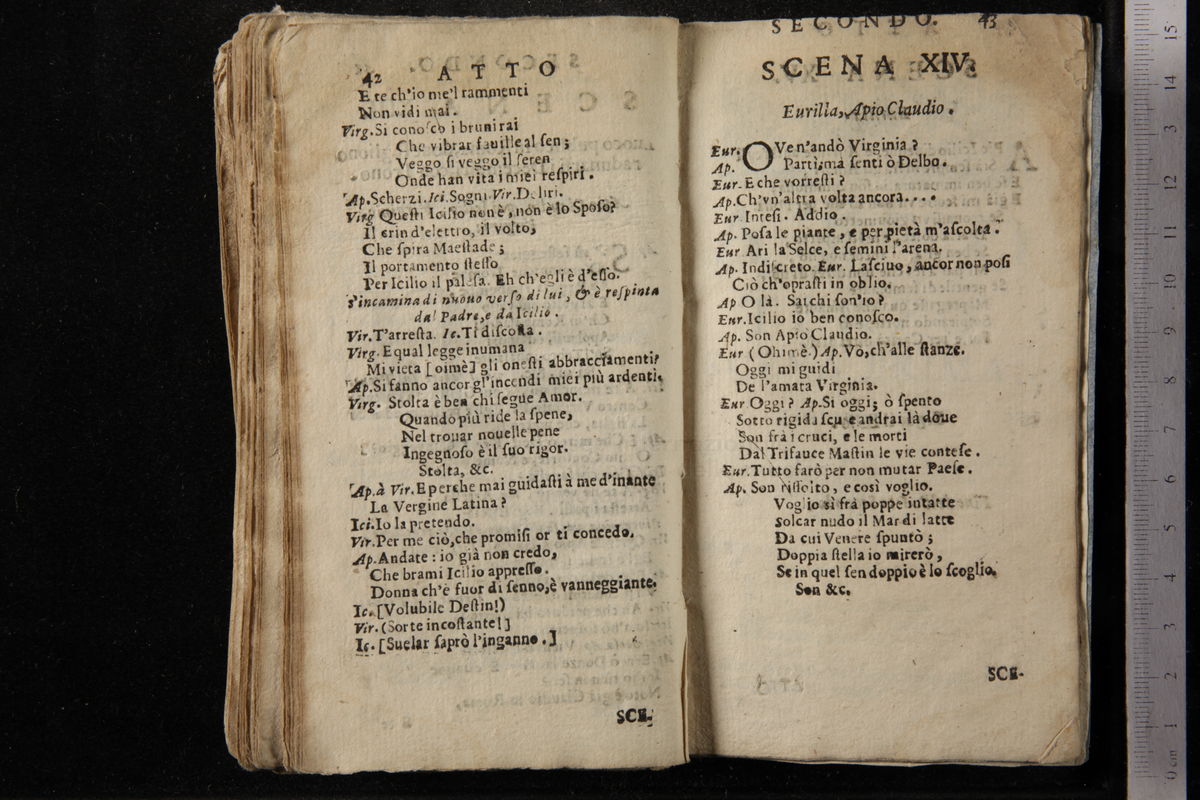 42 ATTO
E te ch'io me'l rammenti
Non vidi mai.
Virg. Si conosco i bruni rai
Che vibrar fauille al sen;
Veggo si veggo il seren
Onde han vita i miei respiri.
Ap. Scherzi. Ici. Sogni. Vir. Deliri.
Virg Questi Icilio non è, non è lo Sposo?
Il crin d'elettro, il volto,
Che spira Maestade;
Il portamento stesso
Per Icilio il palesa. Eh ch'egli è d'esso.
s'incamina di nuouo verso di lui, & è respinta
dal Padre, e da Icilio.
Vir. T'arresta. Ic. Ti discosta.
Virg. E qual legge inumana
Mi vieta [oimè] gli onesti abbracciamenti?
Ap. Si fanno ancor gl'incendi miei più ardenti.
Virg. Stolta è ben chi segue Amor.
Quando più ride la spene,
Nel trouar nouelle pene
Ingegnoso è il suo rigor.
Stolta, &c.
Ap. à Vir. E perche mai guidasti à me d'inante
La Vergine Latina?
Ici. Io la pretendo.
Vir. Per me ciò, che promisi or ti concedo.
Ap. Andate: io già non credo,
Che brami Icilio appresso.
Donna ch'è fuor di senno, è vanneggiante.
Ic. [Volubile Destin!)
Vir. (Sorte incostante!]
Ic. [Suelar saprò l'inganno.]
SCE-
SECONDO. 43
SCENA XIV.
Eurilla, Apio Claudio.
Eur. OVe n'andò Virginia?
Ap. Partì, ma senti ò Delbo.
Eur. E che vorresti?
Ap. Ch'vn'altra volta ancora....
Eur Intesi. Addio.
Ap. Posa le piante, e per pietà m'ascolta.
Eur Ari la Selce, e semini l'arena.
Ap. Indiscreto. Eur. Lasciuo, ancor non posi
Ciò ch'oprasti in oblio.
Ap O là. Sai chi son'io?
Eur. Icilio io ben conosco.
Ap. Son Apio Claudio.
Eur (Ohimè.) Ap. Vo, ch'alle stanze.
Oggi mi guidi
De l'amata Virginia.
Eur Oggi? Ap. Si oggi; ò spento
Sotto rigida scu e andrai là doue
Son frà i cruci, e le morti
Dal Trifauce Mastin le vie contese.
Eur. Tutto farò per non mutar Paese.
Ap. Son risolto, e così voglio.
Voglio sì frà poppe intatte
Solcar nudo il Mar di latte
Da cui Venere spuntò;
Doppia stella io mirerò,
Se in quel sen doppio è lo scoglio.
Son &c.
SCE-